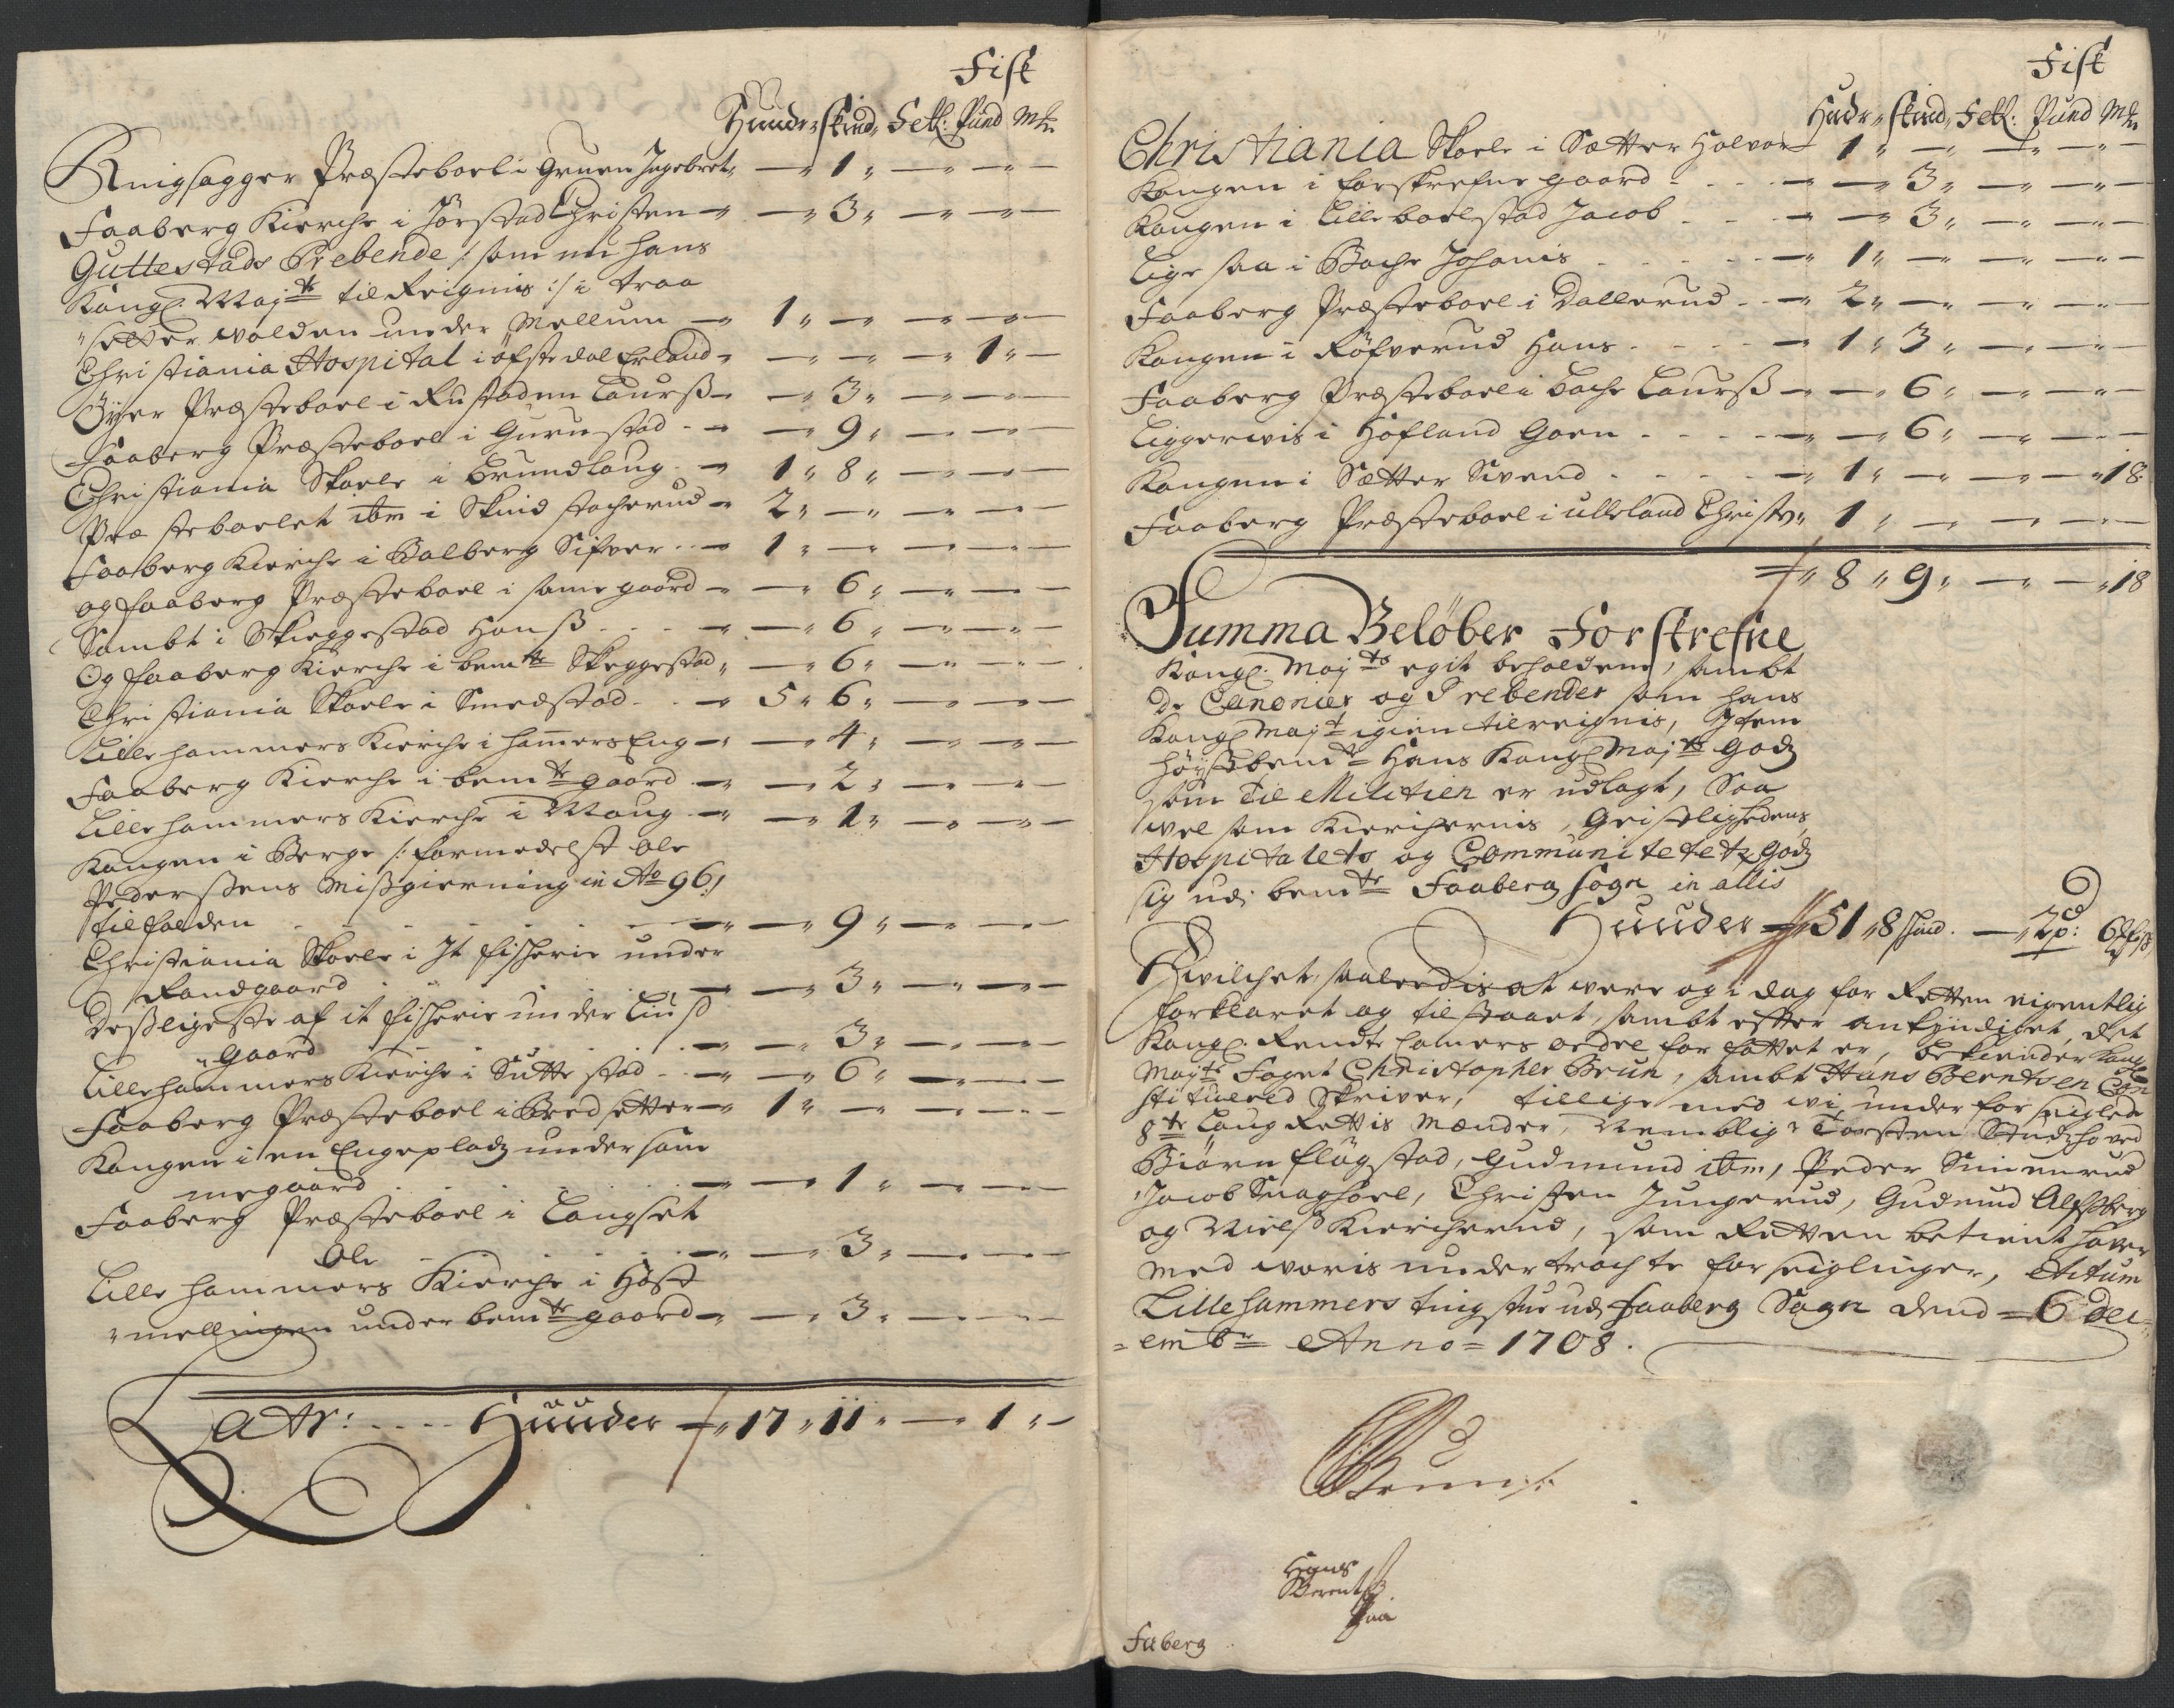 Fisk
Huuder, skind, Setl: Pund Mk
Ringsagger Præsteboel i Gruen Ingebret, — 1 , — — —
Faaberg Kierche i Jørstad Christen — — 3 , — — —
Guttestads Præbende /: som nu hans
Kongl. Maytt tilkeignis :/ i traa
sætter volden under Mellum — 1 , — — — —
Christiania Hospital i øfstedal Erland — — — 1 , —
Öÿer Præsteboel i Rustaden Laurß — — 3 , — — —
Faaberg Præsteboel i Gurustad — — 9 , — — —
Christiania Skoele i Brundlaug — 1 , 8 , — — —
Præsteboelet ibm i Skindstacherud — 2 , — — — —
Faaberg Kierche i Balberg Sifver — 1 , — — — —
og faaberg Præsteboel i samegaard — — 6 , — — —
Sambt i Skieggestad Hanß — — 6 , — — —
Og faaberg Kierche i bemte Skeggestad, — 6 , — — —
Christiania Skoele i Smedstad — 5 , 6 , — — —
Lillehammers Kierche i hammers Eng — — 4 , — — —
Faaberg Kierche i bemte gaard — — 2 , — — —
Lillehammers Kierche i Maug — — 1 , — — —
Kongen i Berge /: formedelst ole
Pederssens Mißgierning in Ao 96:/
tilfalden — — 9 , — — —
Christiania Skoele i It fischerie under
Randgaard — — 3 , — — —
Desligeste af it fischerie under Liusˢ
gaard — — 3 , — — —
Lillehammers Kierche i Sutte stad — — 6 , — — —
Faaberg Præsteboel i Bredsetter — 1 , — — — —
Kongen i en Engepladz under sam
megaard — — 1 , — — —
Faaberg Præsteboel i Langset
Ole — — 3 , — — —
Lillehammers Kierche i Høst
mellingen under bemte gaard — — 3 , — — —
Latr: .... Huuder — 17 , 11 , — 1 , —
Fisk
Hudr, skind, Setl: Pund Mk
Christiania Skoele i Sætter Halvor 1 , — — — —
Kongen i forskrefne gaard — — 3 , — — —
Kongen i Lille boelstad Jacob — — 3 , — — —
Lige saa i Bache Johanis — 1 , — — — —
Faaberg Præsteboel i Dallerud — 2 , — — — —
Kongen i Röfverud Hans — 1 , 3 , — — —
Faaberg Præsteboel i bache Laurß — — 6 , — — —
Liggervis i Hofland Goen — — 6 , — — —
Kongen i Sætter Svend — 1 , — — — 18.
Faaberg Præsteboel i ulleland Christen, 1 , — — — —
8 , 9 , — — 18
Summa Beløber Forskrefne
Kongl. Mayts egit beholdene, sambt
de Canonier og Prebender som hans
Kongl Mayt igien tilreignis, Item
høystbemte Hans Kongl Mayts Godz
som til Militien er udlagt, Saa
vel som Kierchernis, Geistlighedens,
Hospitalets og Communitetetz godz
sig udj bemte Faaberg Sogn in allis
Huuder — 51 , 8 skind. — 2 p:
Hvilchet saaledis at vere og i dag for Retten eigentlig
forklaret og tilstaaet, sambt efter ankyndiget, det
Kongl. Rendte Camers ordre forfattet er, bekiender Kongl
Mayts Foget Christopher Brun, sambt Hans Berntsen Con
stituered Skriver, tillige med vi underforseiglede
8te Laug Rettis Mænder, Nemblig: Torsten Studshoved
Biørn fløgstad, Gudmund ibm, Peder Sinnerud
Jacob Svaghoel, Christen Jungerud, Gudmund Alfsberg
og Niels Kiercherud, som Retten betient hafver
Med voris undertrøchte forseiglinger, Actum
Lillehammers tingstue udj Faaberg Sogn dend = 6 dec=
=embr Anno = 1708.
CBrun
Hans
Berentß
Paa
Faberg